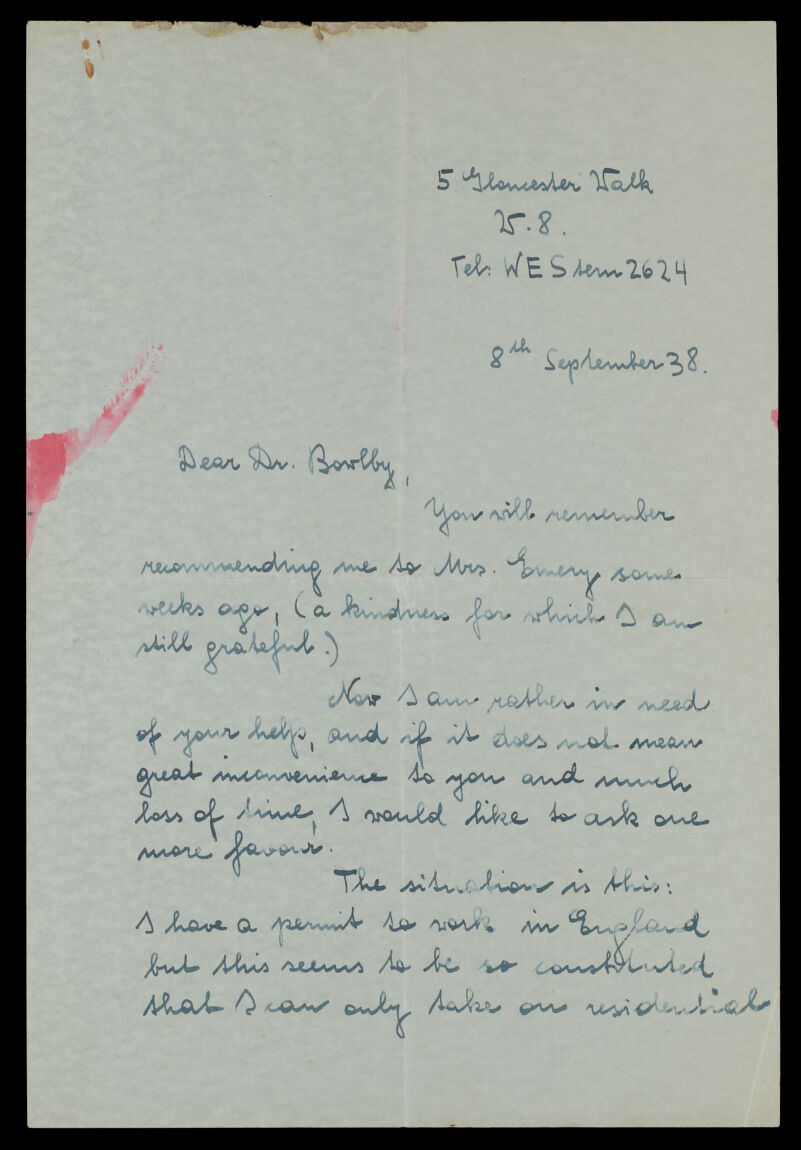 5 Gloucester Walk
W. 8.
Tel: WEStern 2624
8th September 38.
Dear Dr. Bowlby,
You will remember
recommending me to Mrs. Emery some
weeks ago, (a kindness for which I am
still grateful.)
Now I am rather in need
of your help, and if it does not mean
great inconvenience to you and much
loss of time, I would like to ask one
more favour.
The situation is this:
I have a permit to work in England
but this seems to be so constituted
that I can only take on residential